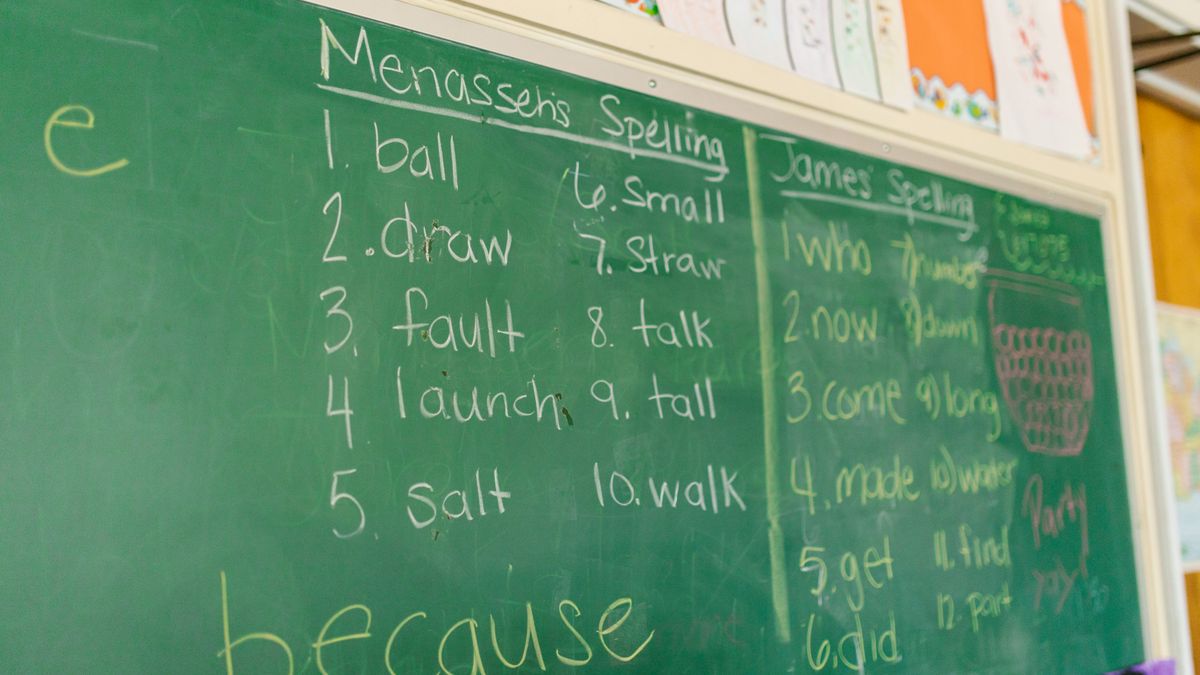 e
Menasseh's Spelling
1. ball
2. draw
3. fault
4. launch
5. salt
6. Small
7. Straw
8. talk
9. tall
10. walk
because
James' Spelling
1 who
2. now
3. come
4. made
5. get
6. did
7) number
8) down
9) long
10) water
11. find
12. part
Party